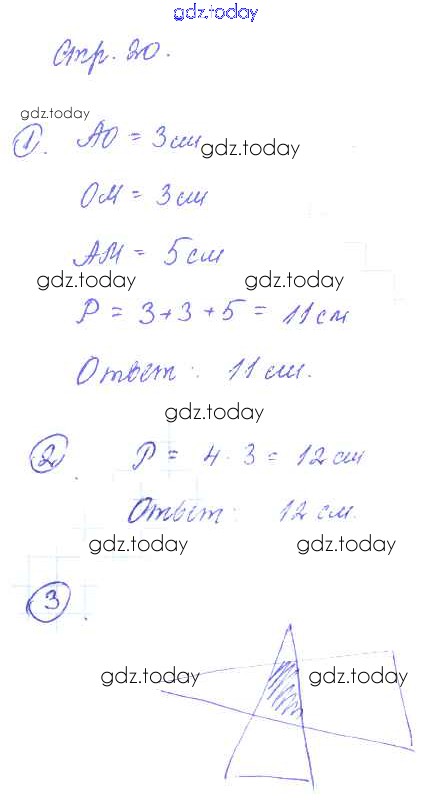 gdz.today
Стр. 20.
gdz.today
1. АО = 3 см
gdz.today
ОМ = 3 см
АМ = 5 см
gdz.today gdz.today
Р = 3+3+5 = 11 см
Ответ: 11 см.
gdz.today
2. Р = 4 · 3 = 12 см
Ответ: 12 см.
gdz.today gdz.today
3.
gdz.today gdz.today